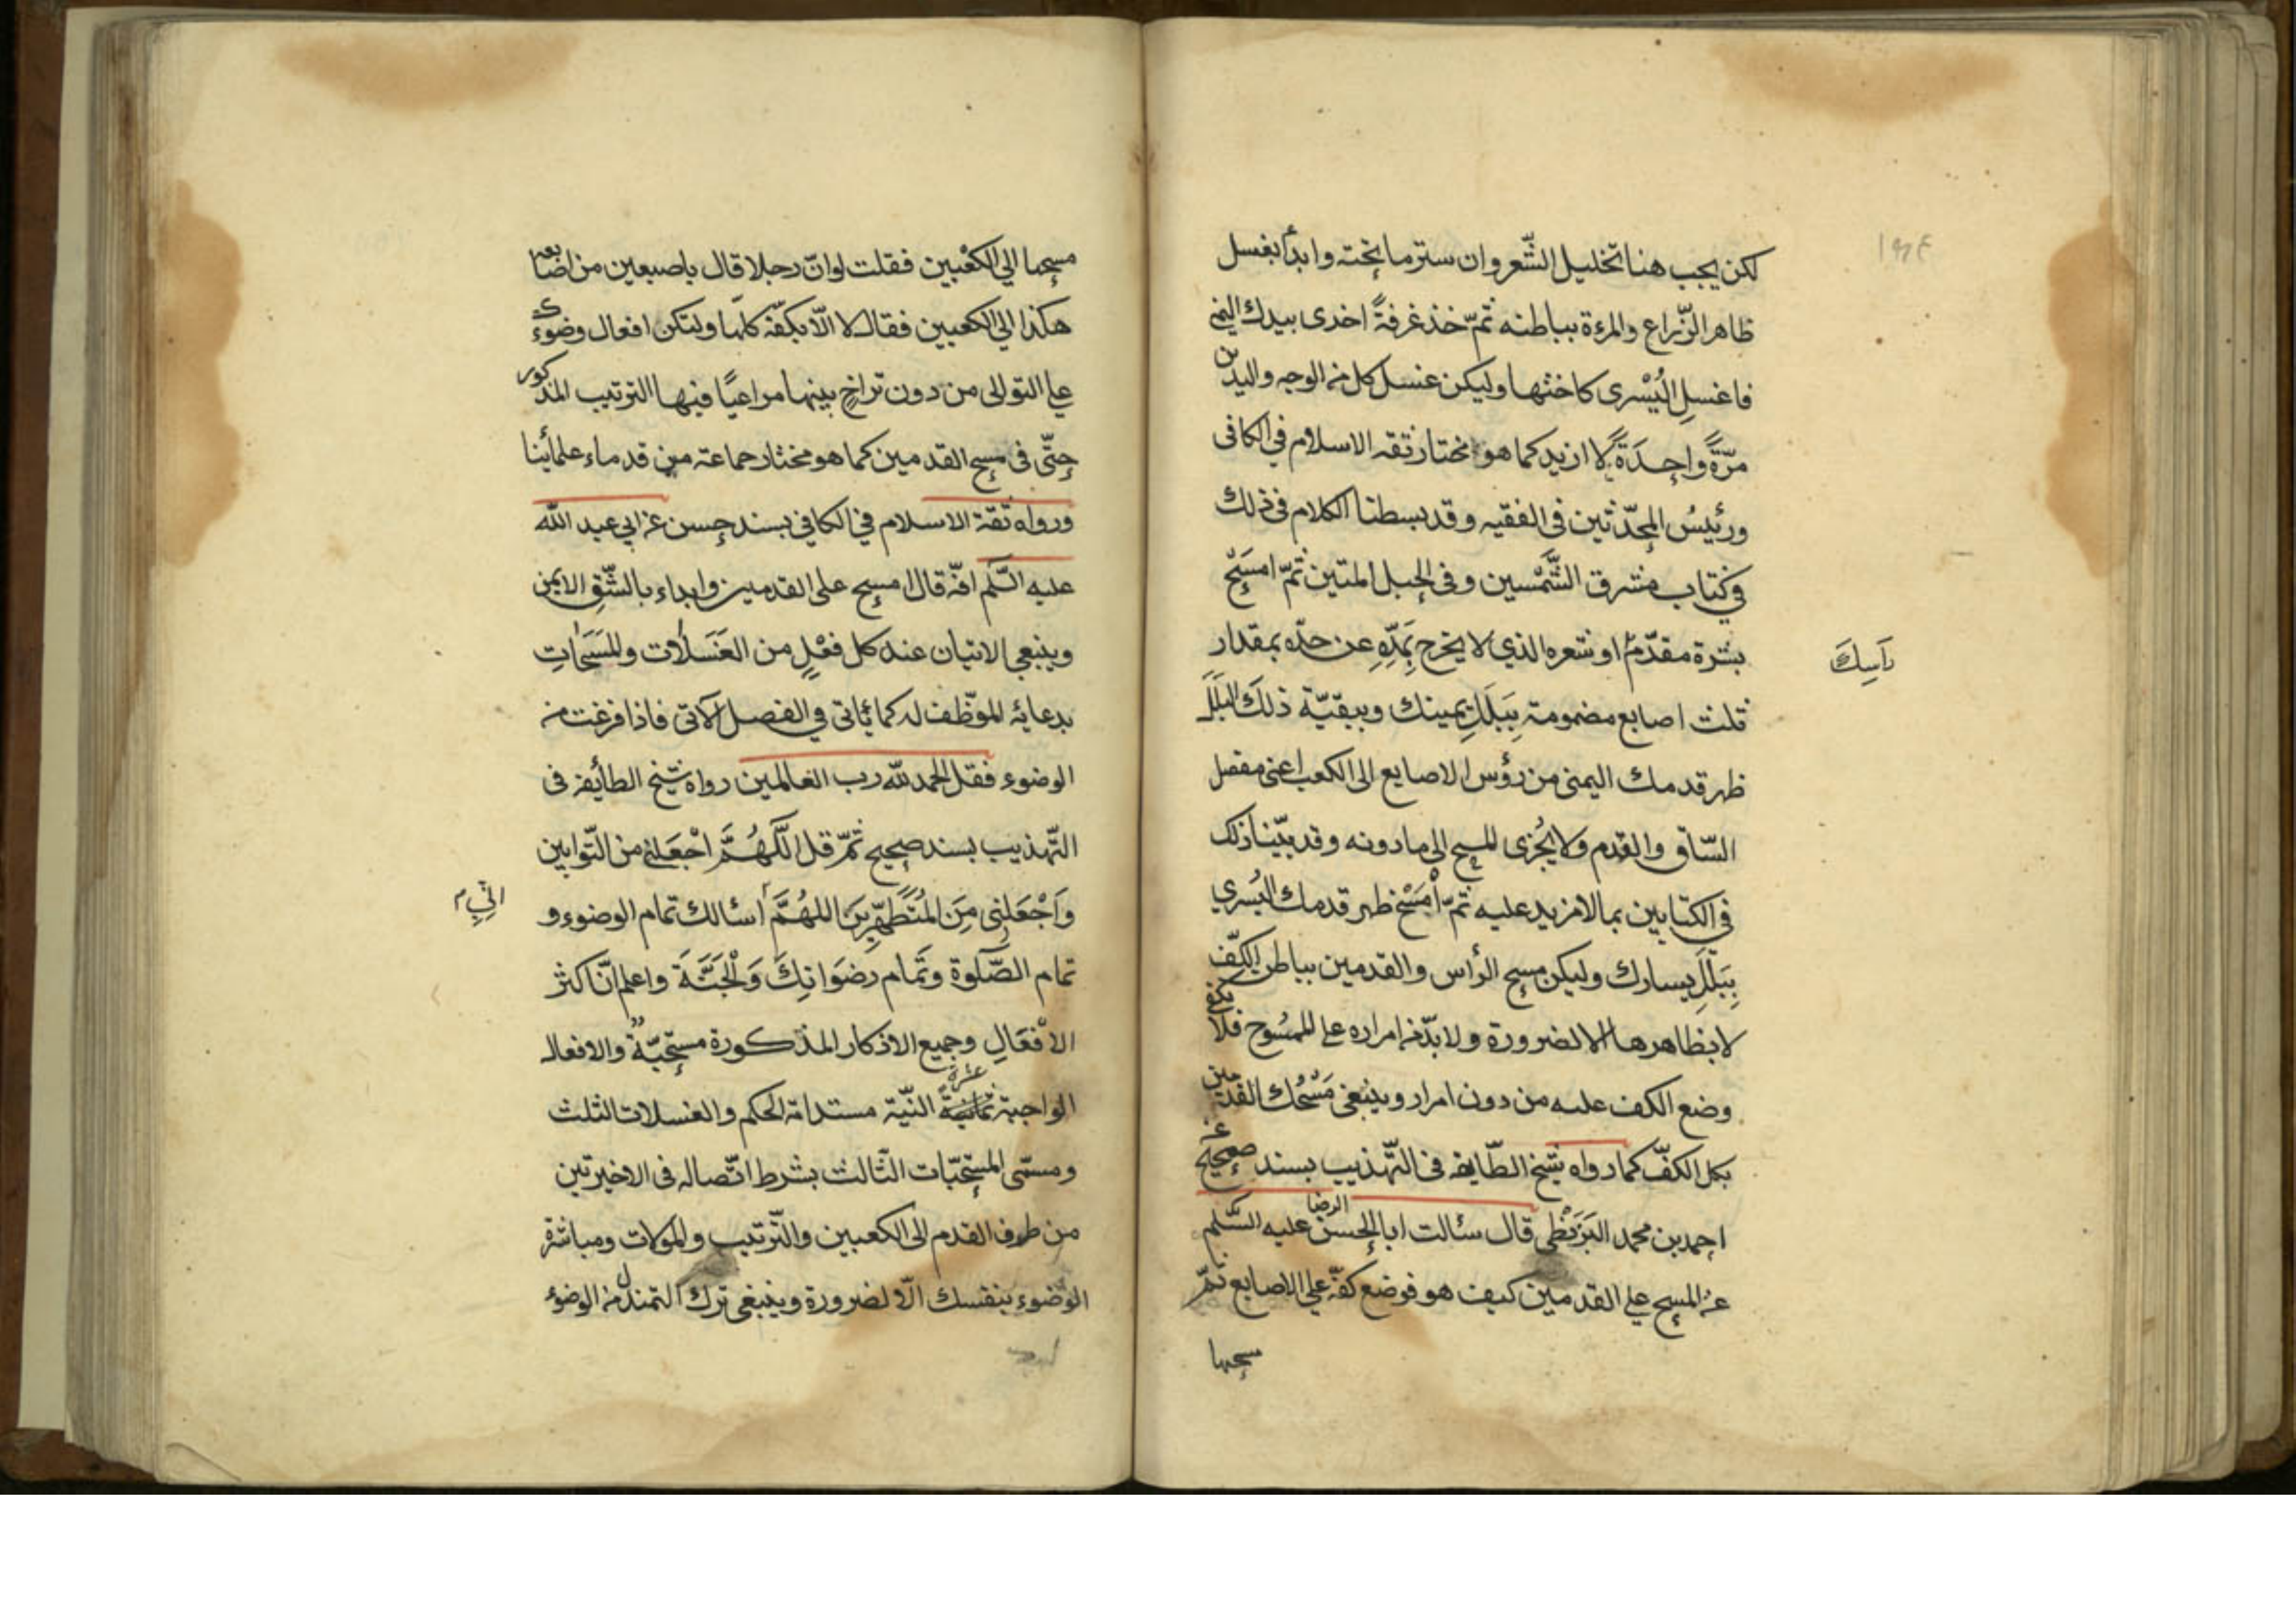 لكن يجب هنا تخليل الشّعر وان ستر ما تحته وابدأ بغسل
ظاهر الزّراع والمرءة بباطنه ثمّ خذ غرفةً اخرى بيدك اليمنى
فاغسلِ اليُسْرى كاختها وليكن غسل كل من الوجه واليدين
مرّةً واحِدَةً لا ازيد كما هو مختار ثقه الاسلام في الكافى
ورئيسُ المحدّثين فى الفقيه وقد بسطنا الكلام فى ذلك
في كتاب مشرق الشَّمْسين وفى الحبل المتين ثمّ امسَحْ
بشرة مقدّم او شعره الذي لا يخرج بمَدِّهِ عن حدّه بمقدار
رَأسِكَ
ثلث اصابع مضمومة بِبَلَلِ يمينك وببقيّة ذلك البَلَلَ
ظهر قدمك اليمنى من رؤس الاصابع الى الكعب اعنى مفصل
السّاق والقدم ولا يُجْزى المسح الى ما دونه وقد بيّنا ذلك
في الكتابين بما لا مزيد عليه ثمّ أمسَحْ ظهر قدمك اليُسري
بِبَلَلِ يسارك وليكن مسح الرأس والقدمين بباطن الكفّ
لا بظاهرها الا لضرورة ولا بدّ من امراره على الممسُوح فلا يكفى
وضع الكف عليه من دون امرار وينبغى مَسْحُك القدمين
بكل الكفّ كما رواه شيخ الطّايفه فى التّهذيب بسند صحيح عن
احمد بن محمد البَزَنْطى قال سئالت ابا الحسن الرضا عليه السّلم
عن المسح على القدمين كيف هو فوضع كفّه على الاصابع ثمّ
مسحها
مسحها الي الكعْبين فقلت لو انّ رجلا قال باصبعين من اصابعه
هكذا الي الكعبين فقال لا الّا بكفّه كلّها ولتكن افعال وضوءك
على التوالى من دون تراخٍ بينها مراعيًا فيها الترتيب المذكور
حتّى فى مسح القدمين كما هو مختار جماعة من قدماء علمائنا
ورواه ثقة الاسلام في الكافي بسند حسن عن ابي عبد الله
عليه السّلم انّه قال امسح على القدمين وابداء بالشّقِ الايمن
وينبغى الاتيان عند كل فعْلٍ من الغَسَلات والمَسَحاتِ
بدعائه الموظّف له كما ياتى في الفصل الآتى فاذا فرغت من
الوضوء فقل الحمد لله رب العالمين رواه شيخ الطائفه فى
التّهذيب بسند صحيح ثمّ قل اللَّهُمَّ اجْعَلنى من التّوابين
وَاجْعَلنِى مِنَ المُتَطَهِّرِينَ اللهُمَّ أسئالك تمام الوضوء و
اِنّى م
تمام الصّلوة وتَمام رِضوَانِكَ وَالْجَنَّةَ واعلم انّ اكثر
الأفْعَالِ وجميع الاذكار المذكورة مستحبّةٌ والافعال
الواجبة ثمانيةَ عشرة النيّة مستدامة الحكم والغسلات الثلث
ومسمّى المستحبّات الثّالث بشرط اتّصاله فى الاخيرتين
من طرف القدم الى الكعبين والتّرتيب والمولات ومباشرة
الوضوء بنفسك الّا لضرورة وينبغى ترك التمندل من الوضوء